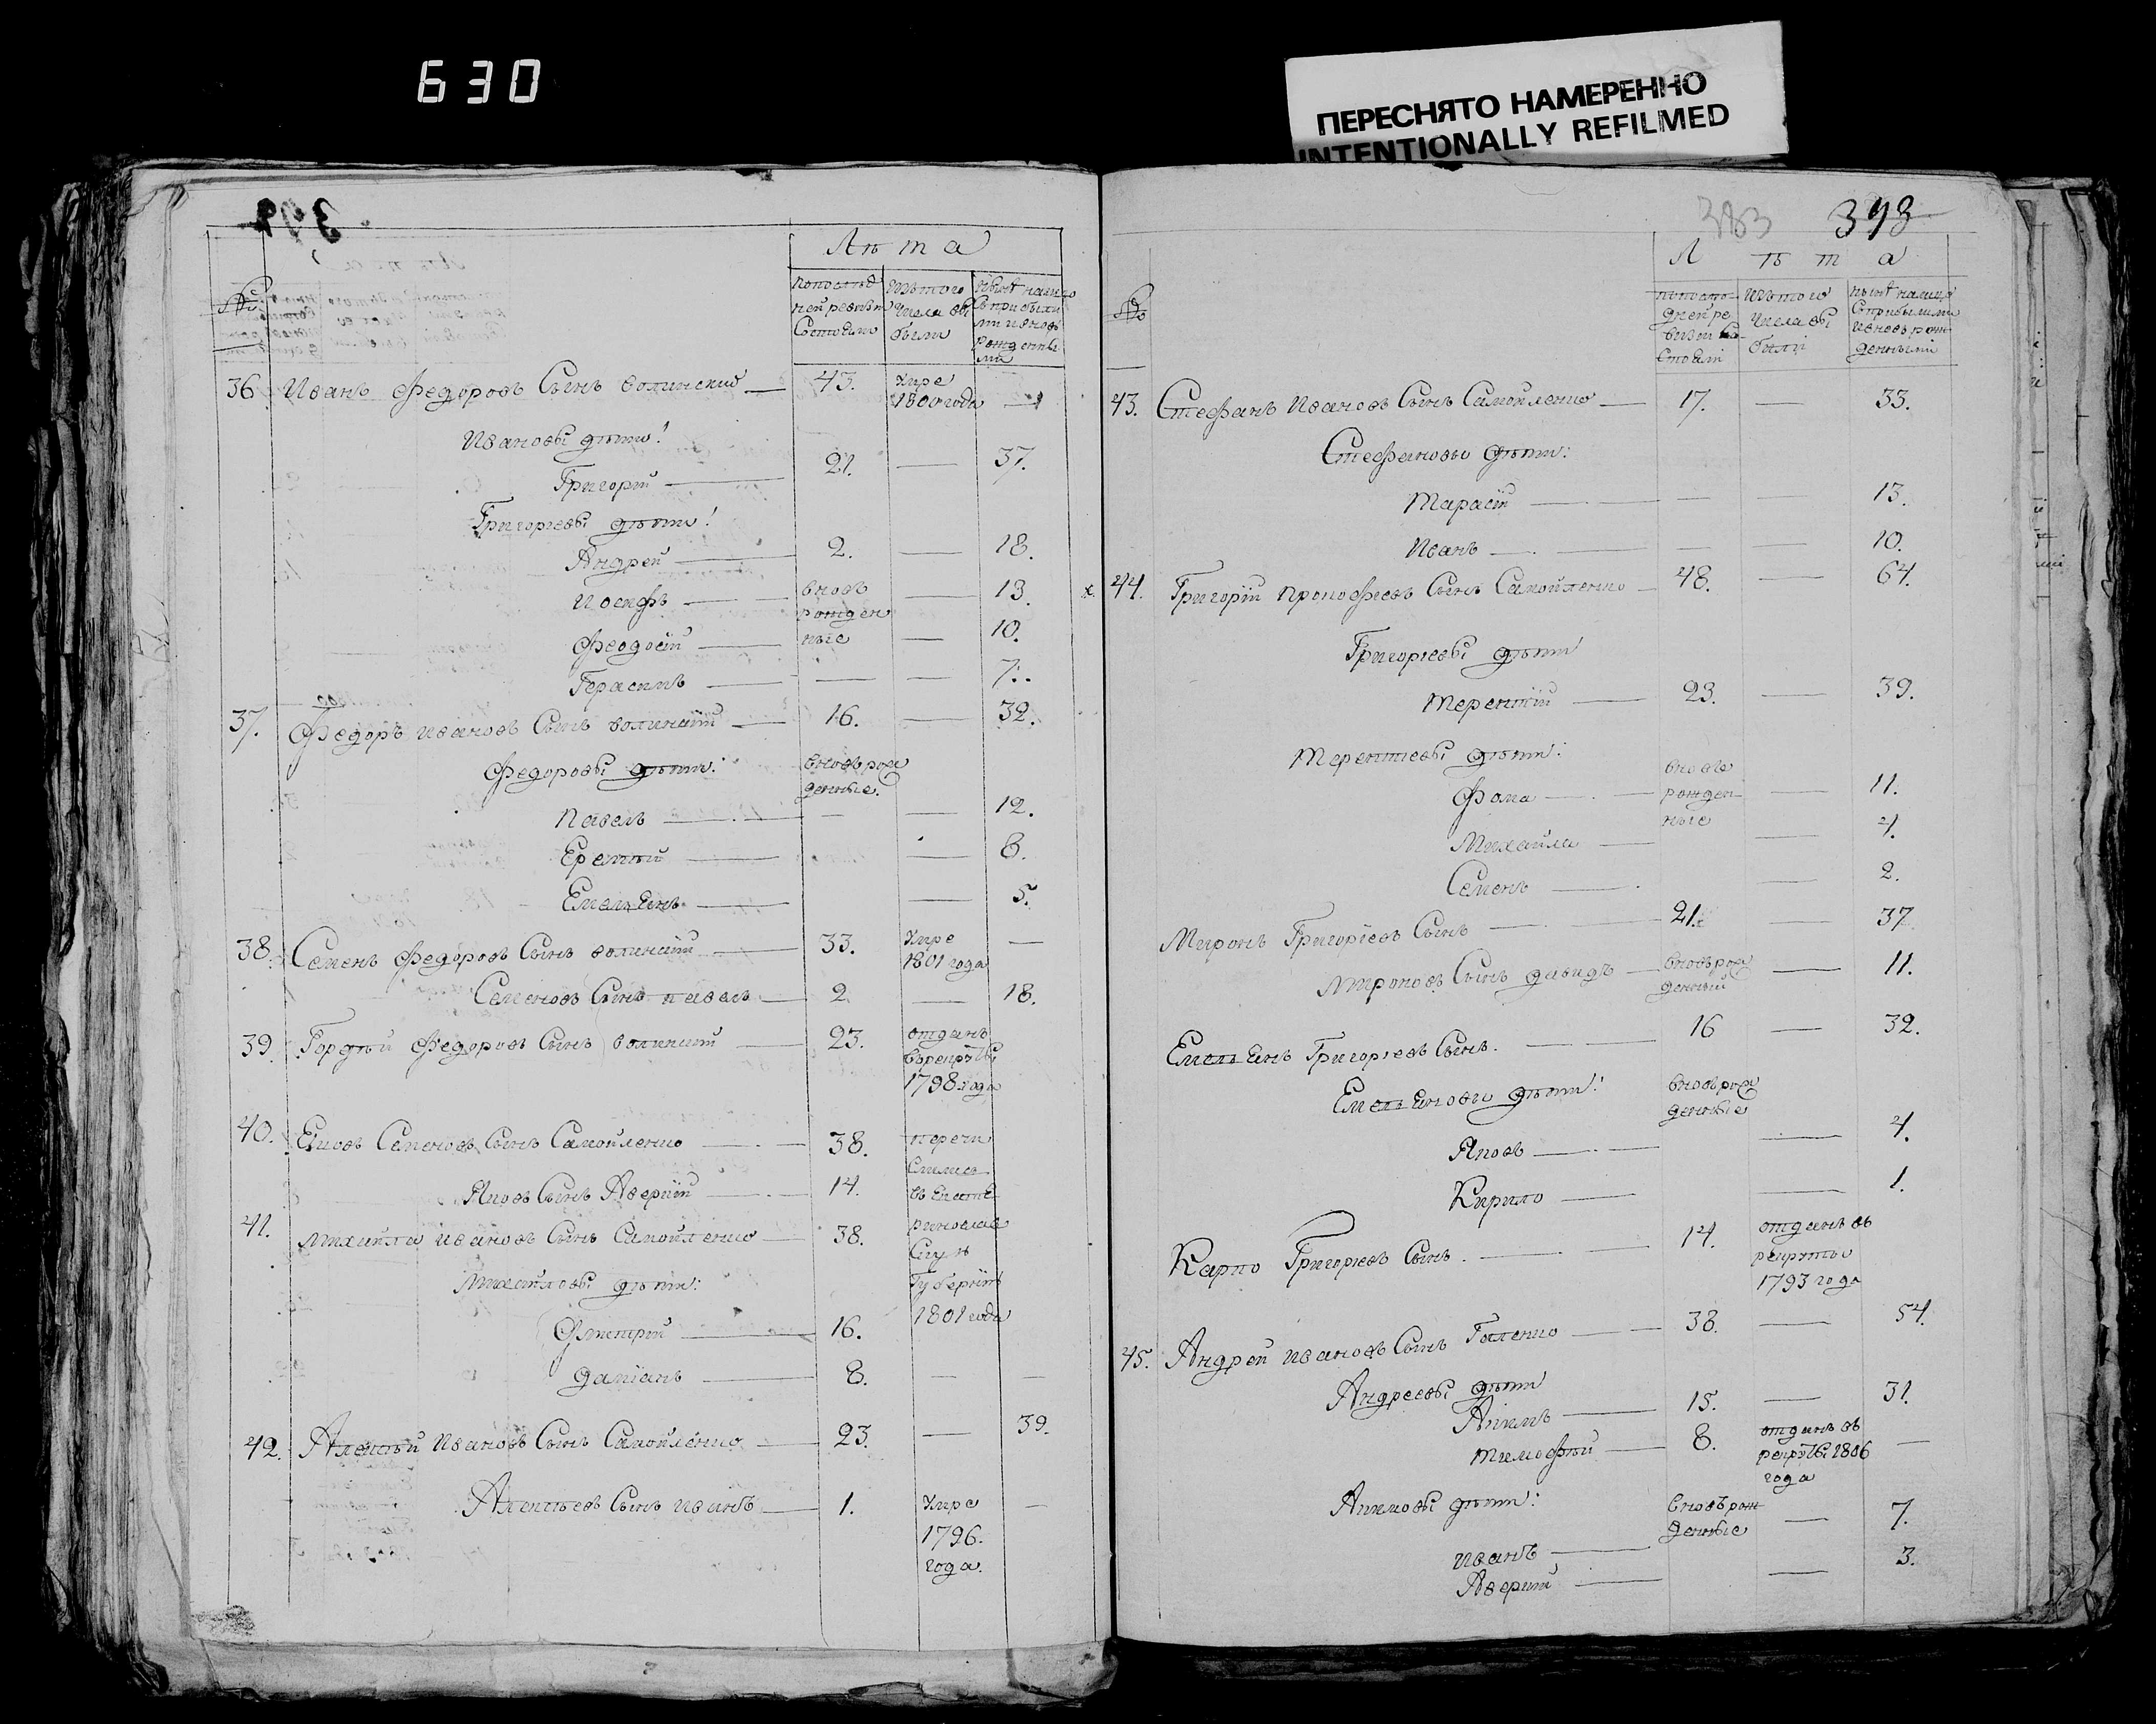 630
ПЕРЕСНЯТО НАМЕРЕННО
INTENTIONALLY REFILMED
394
Лѣта
№
по послѣд
ней ревизіи
состояло
Изъ того
числа вы
было
Нынѣ налицо
съ прибылы
ми и вновь
рожденны
ми
36 Иванъ Федоровъ Сынъ Волинский — 43. умре 1800 года —
Ивановы дѣти:
Григорій — 21. — 37.
Григорьевы дѣти:
Андрей — 2. — 18.
Иосифъ — вновь рожден ные — 13.
Феодосій — — 10.
Герасимъ — — — 7.
37. Федоръ Ивановъ Сынъ Волинскій — 16. — 32.
Федоровы дѣти: вновь рож денные.
Павелъ — — — 12.
Еремѣй — — 8.
Емельянъ — — 5.
38. Семенъ Федоровъ Сынъ Волинскій — 33. умре 1801 года —
Семеновъ Сынъ Павелъ — 2 — 18.
39. Гордѣй Федоровъ Сынъ Волинскій — 23. отданъ в рекруты 1798 года
40. Яковъ Семеновъ Сынъ Самойленко — 38. перечи
Яковъ Сынъ Аверкій — 14. слились в Екате
41. Михайла Ивановъ Сынъ Самойленко — 38. ринослав скую
Михайловы дѣти: Губернію
Дмитрій — 16. 1801 года
Даміанъ — 8. — —
42. Алексѣй Ивановъ Сынъ Самойленко — 23. — 39.
Алексѣевъ Сынъ Иванъ — 1. умре 1796. года. —
383 393
Лѣта
№
по послѣ
дней ре
визіи со
стояли
Изъ того
числа вы
были
нынѣ налицо
с прибылими
и вновь рож
денными
43. Стефанъ Ивановъ Сынъ Самойленко — 17. — 33.
Стефановы дѣти:
Тарасій — — — 13.
Иванъ — — — 10.
х. 44. Григорій Прокофіевъ Сынъ Самойленко — 48. — 64.
Григорьевы дѣти
Терентій — 23. — 39.
Терентіевы дѣти:
Фома — вновь рожден ные — 11.
Михайла — — 4.
Семенъ — — 2.
Миронъ Григоріевъ Сынъ — 21. — 37
Мироновъ Сынъ Давидъ — вновь рож денный — 11.
Емельянъ Григорьевъ Сынъ. — 16 — 32.
Емельяновы дѣти: вновь рож денные
Яковъ — — 4.
Кирило — — 1.
Карпо Григорьевъ Сынъ. — 14. отданъ въ рекруты 1793 года
45. Андрей Ивановъ Сынъ Галенко — 38. — 54.
Андреевы дѣти
Акимъ — 15. — 31.
Тимофѣй — 8. отданъ въ рекруты 1806 года —
Акимовы дѣти: вновь рож денные
Иванъ — — 7.
Аверкій — — 3.